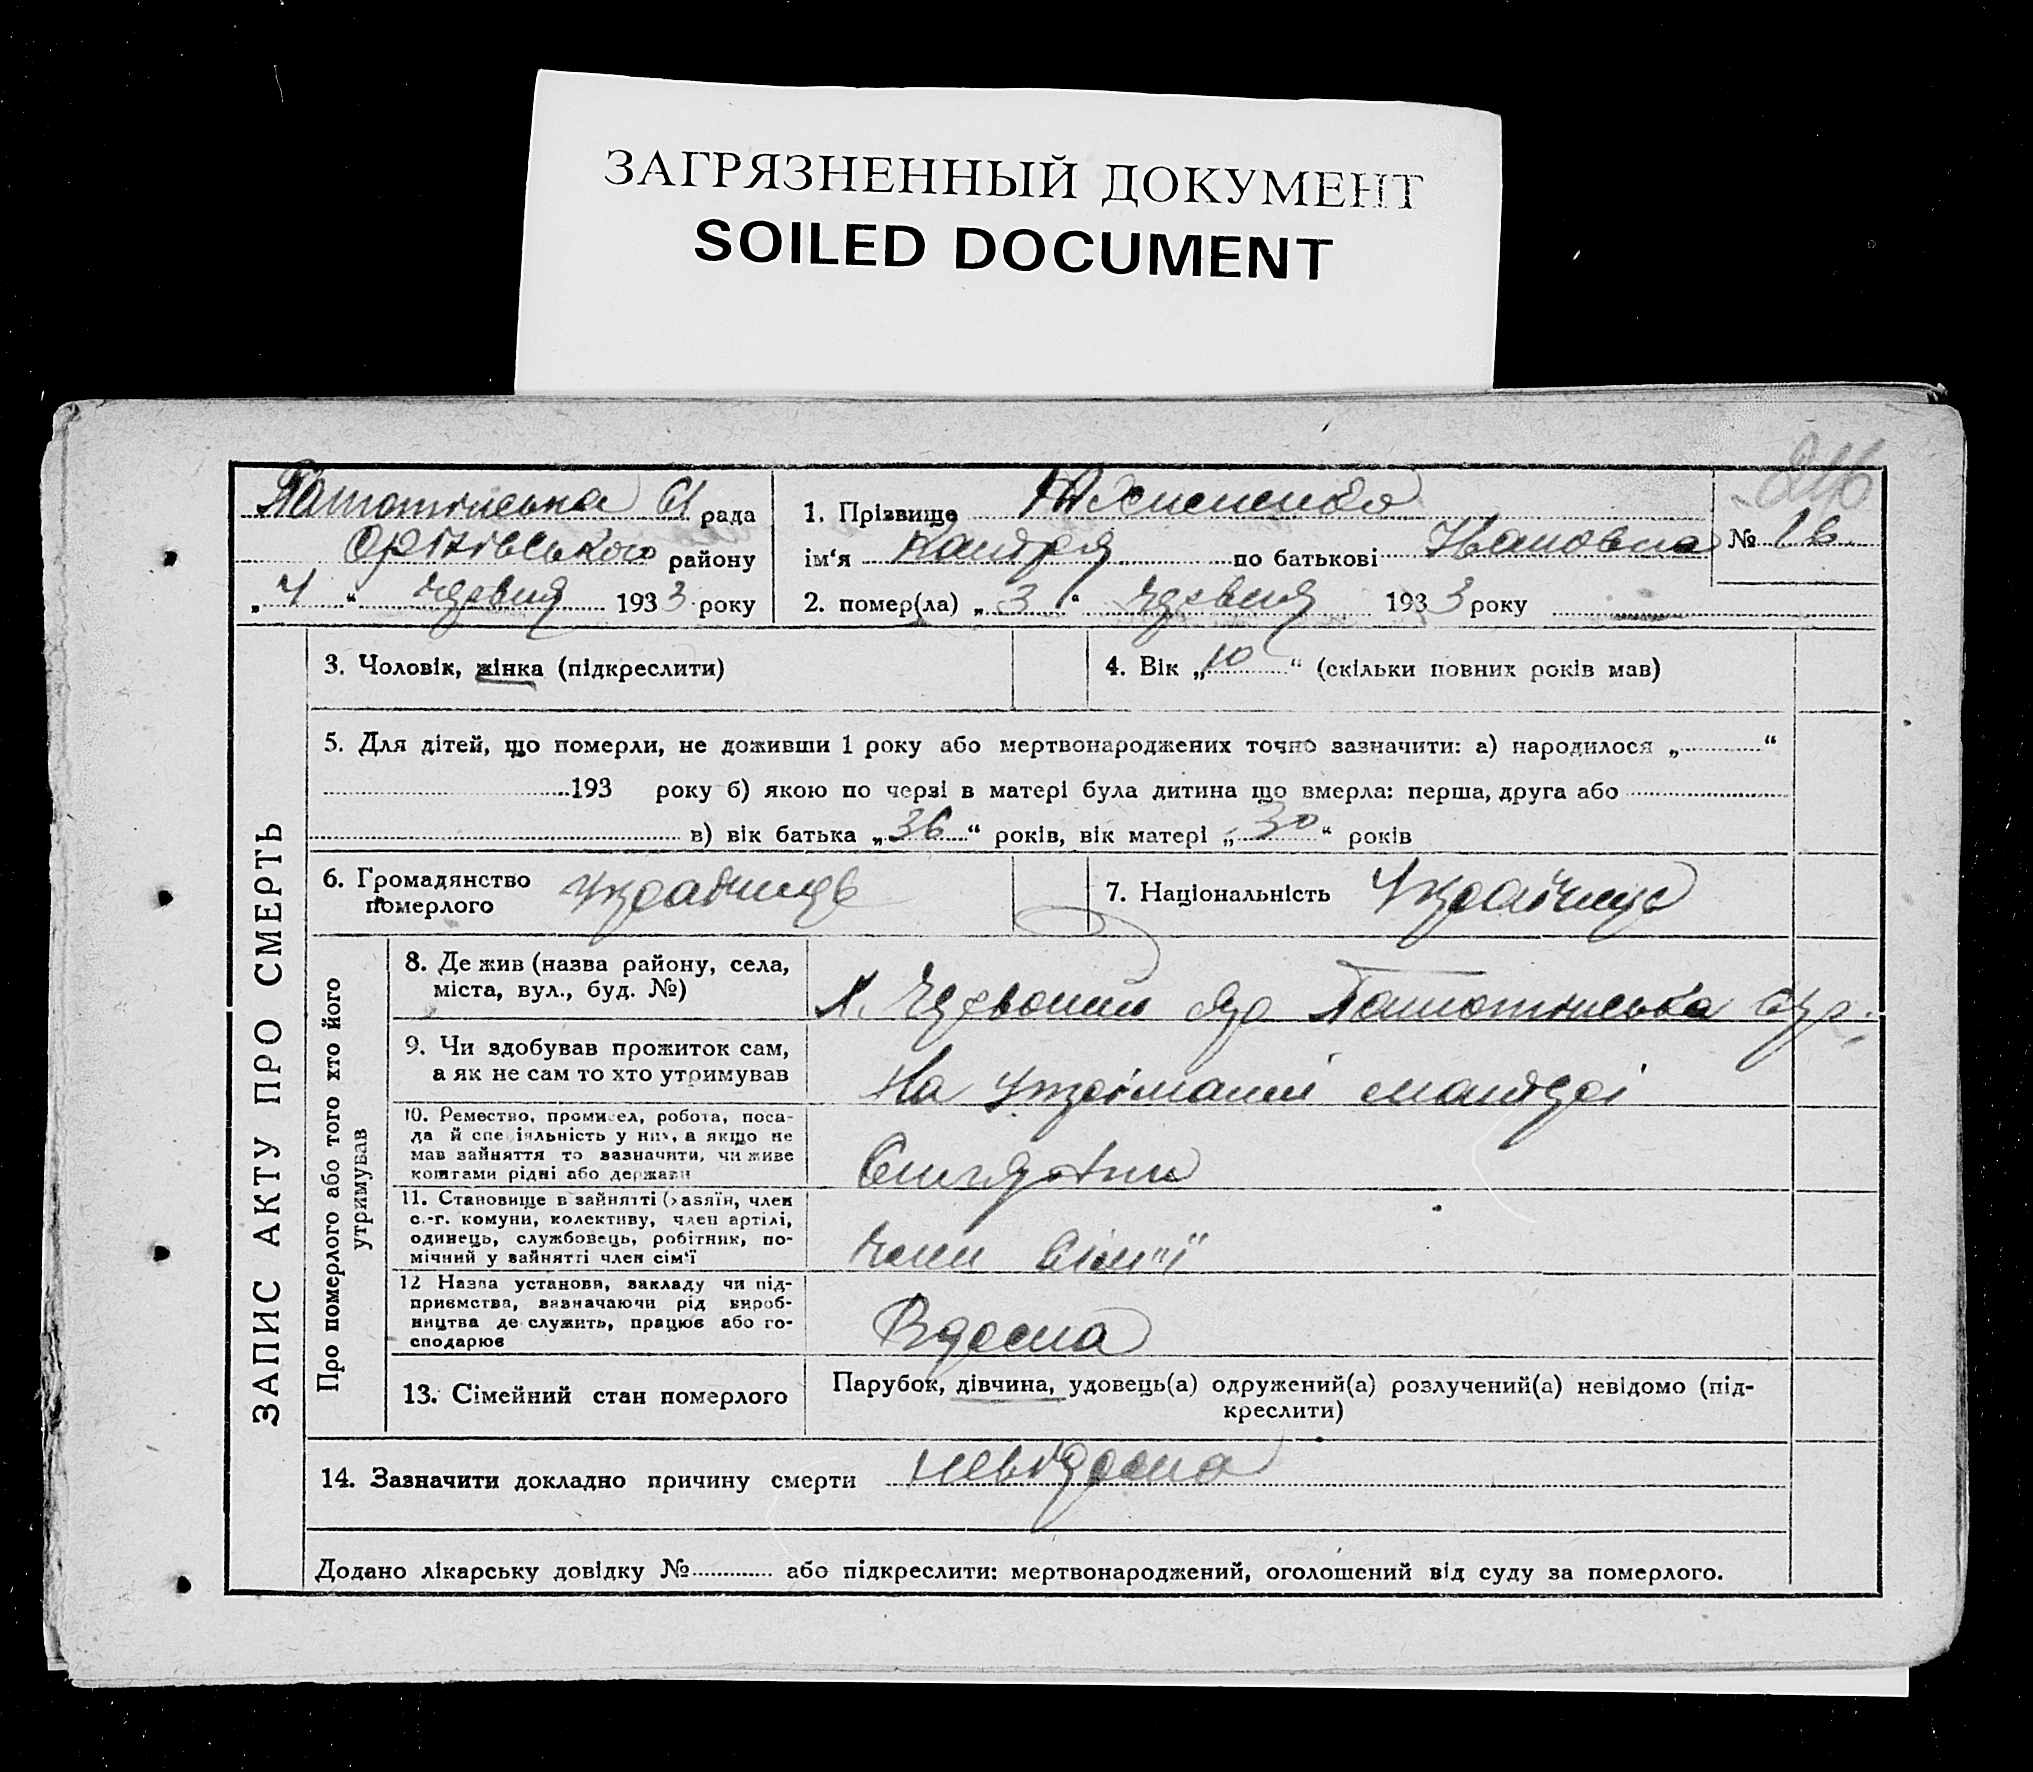 ЗАГРЯЗНЕННЫЙ ДОКУМЕНТ
SOILED DOCUMENT
246
рада
Оріхівського району
„ 4 “ червня 1933 року
1. Прізвище
ім‘я по батькові Івановна № 16
2. помер(ла) „ 3 “ червня 1933 року
ЗАПИС АКТУ ПРО СМЕРТЬ
3. Чоловік, жінка (підкреслити)
4. Вік „ 10 “ (скільки повних років мав)
5. Для дітей, що померли, не доживши 1 року або мертвонароджених точно зазначити: а) народилося „ “
193 року б) якою по черзі в матері була дитина що вмерла: перша, друга або
в) вік батька „ 36 “ років, вік матері „ 30 “ років
6. Громадянство
померлого
7. Національність
Про померлого або того хто його
утримував
8. Де жив (назва району, села,
міста, вул., буд. №)
х. Червоний Яр
9. Чи здобував прожиток сам,
а як не сам то хто утримував
На матері
10. Ремество, промисел, робота, поса-
да й спеціяльність у них, а якщо не
мав зайняття то зазначити, чи живе
коштами рідні або держави
11. Становище в зайнятті (хазяїн, член
с.-г. комуни, колективу, член артілі,
одинець, службовець, робітник, по-
мічний у зайнятті член сім‘ї
член сім"ї
12 Назва установи, закладу чи під-
приємства, зазначаючи рід вироб-
ництва де служить, працює або го-
сподарює
13. Сімейний стан померлого
Парубок, дівчина, удовець(а) одружений(а) розлучений(а) невідомо (під-
креслити)
14. Зазначити докладно причину смерти невідома
Додано лікарську довідку № або підкреслити: мертвонароджений, оголошений від суду за померлого.